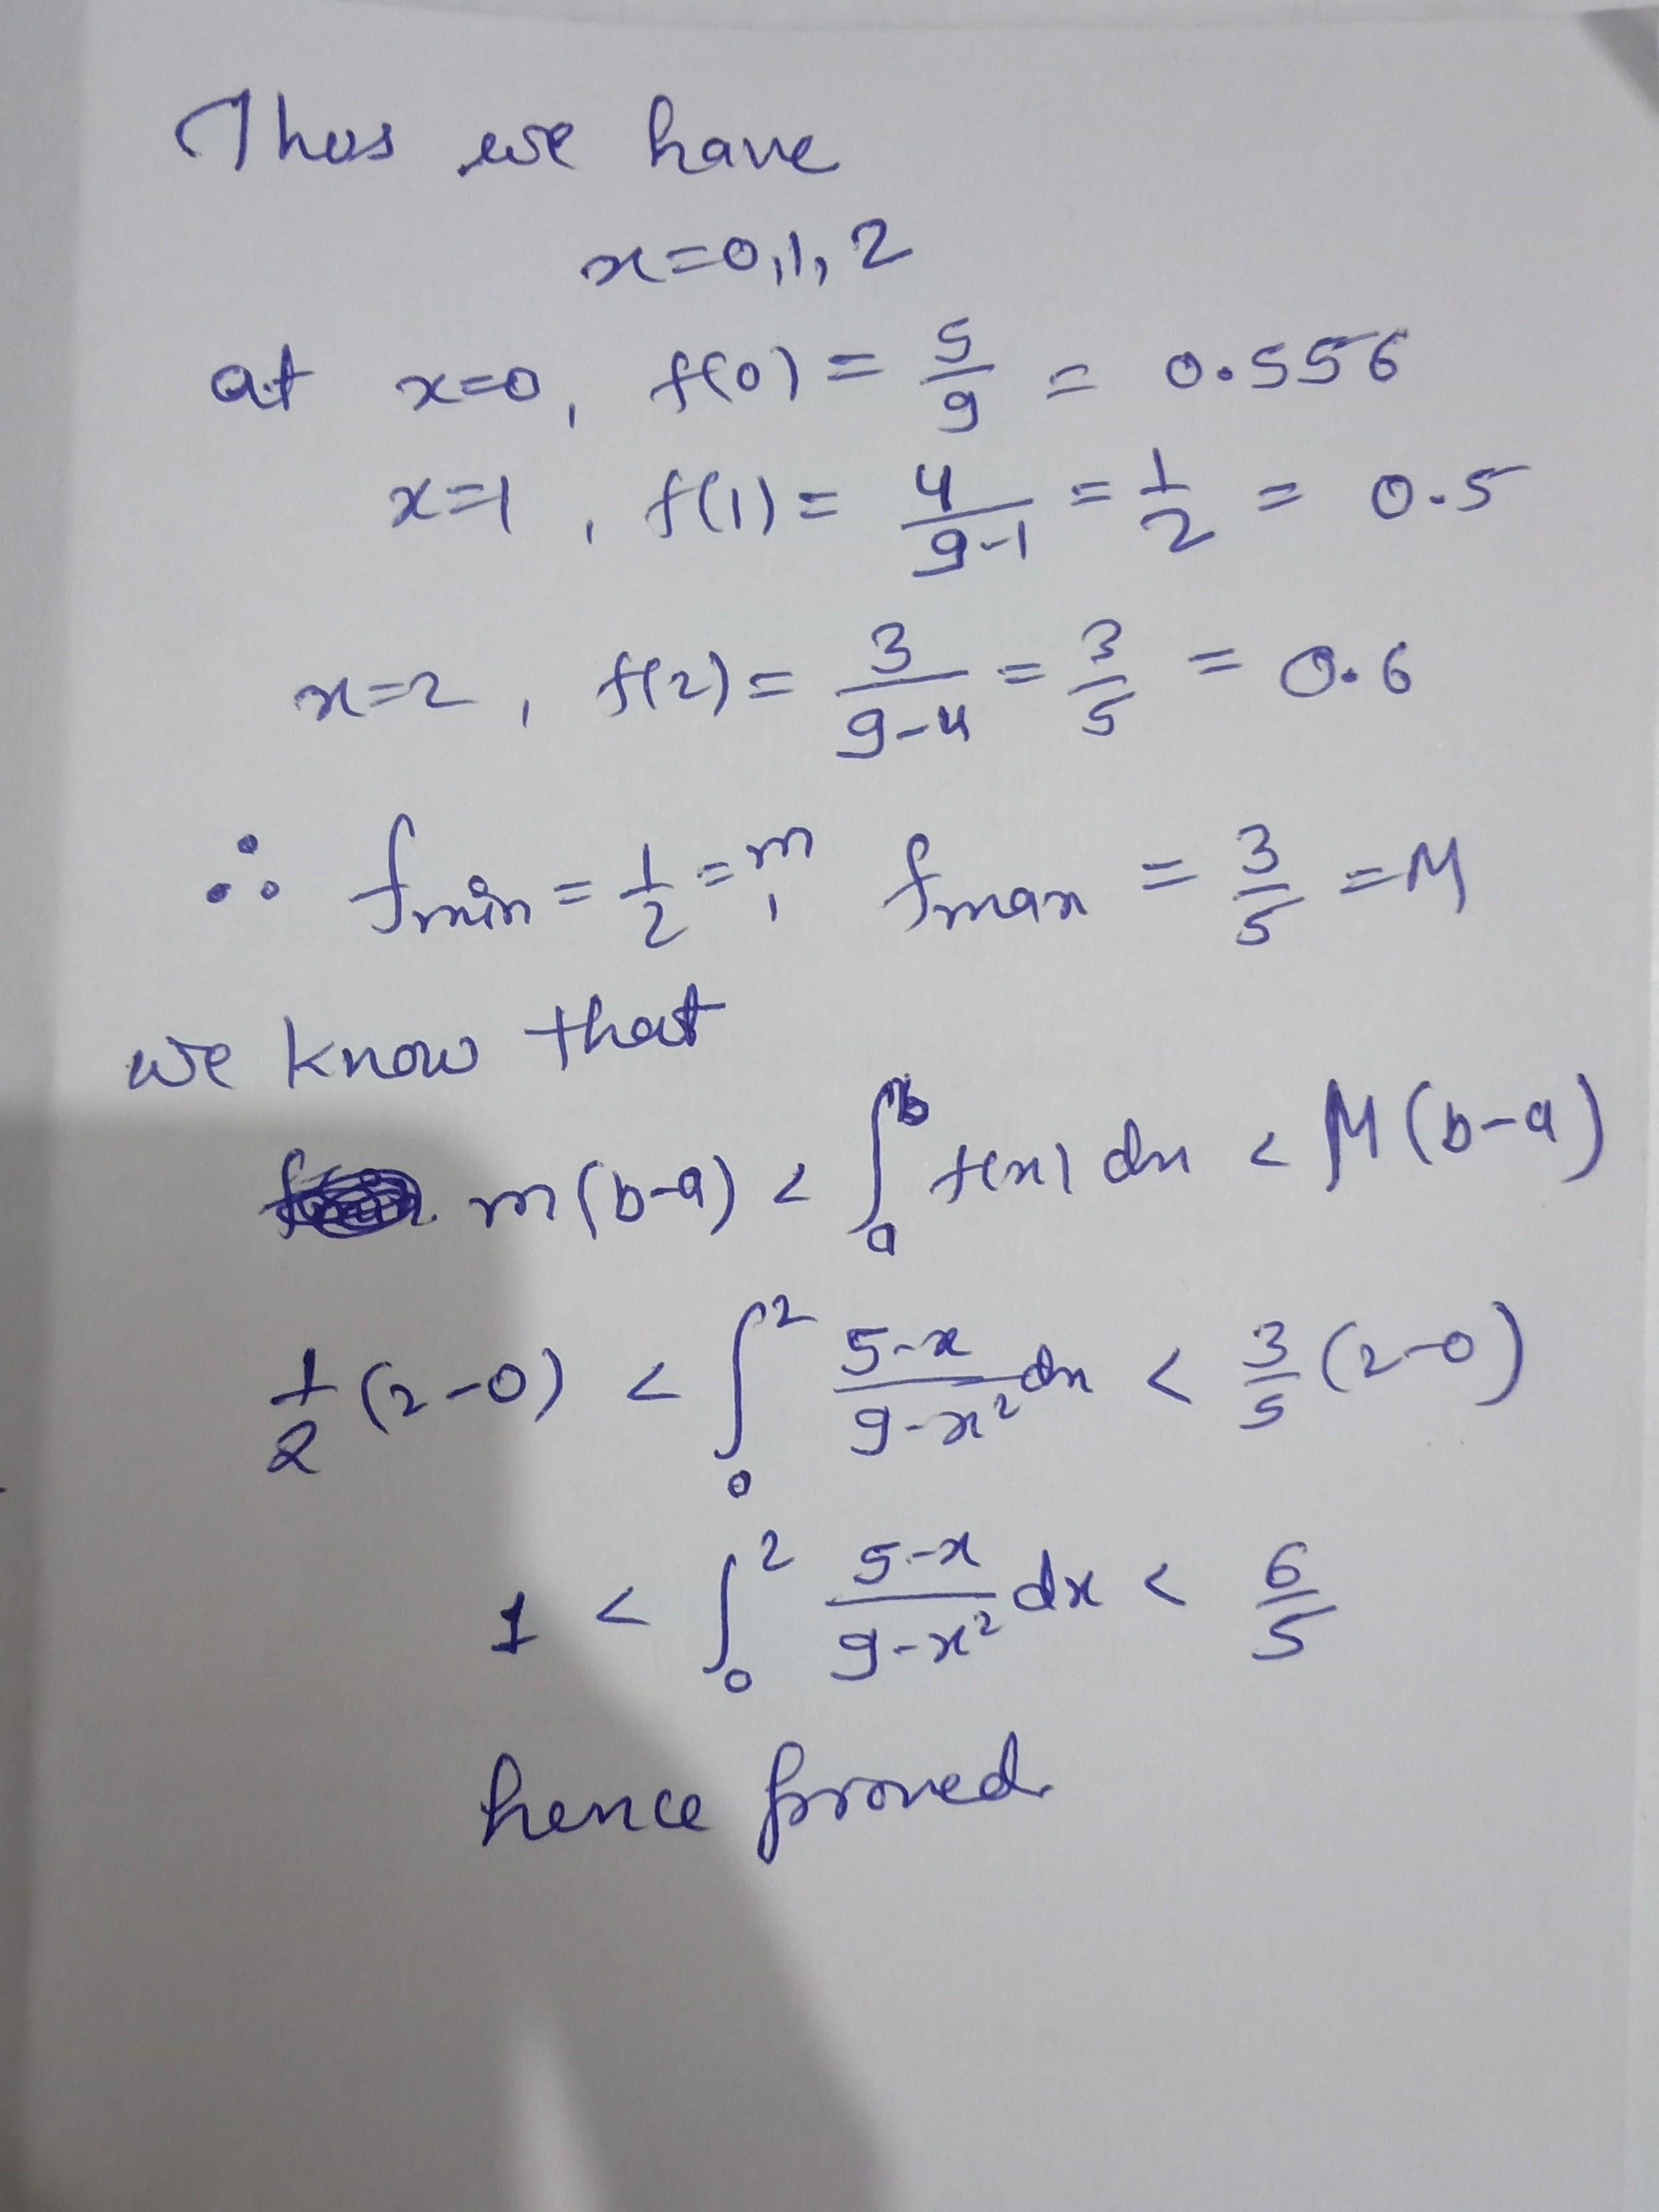 Thus we have
x=0,1,2
at x=0, f(0) = 5/9 = 0.556
x=1, f(1) = 4/(9-1) = 1/2 = 0.5
x=2, f(2) = 3/(9-4) = 3/5 = 0.6
∴ fmin = 1/2 = m, fmax = 3/5 = M
we know that
m(b-a) < ∫_a^b f(x) dx < M(b-a)
1/2 (2-0) < ∫_0^2 (5-x)/(9-x²) dx < 3/5 (2-0)
1 < ∫_0^2 (5-x)/(9-x²) dx < 6/5
hence proved